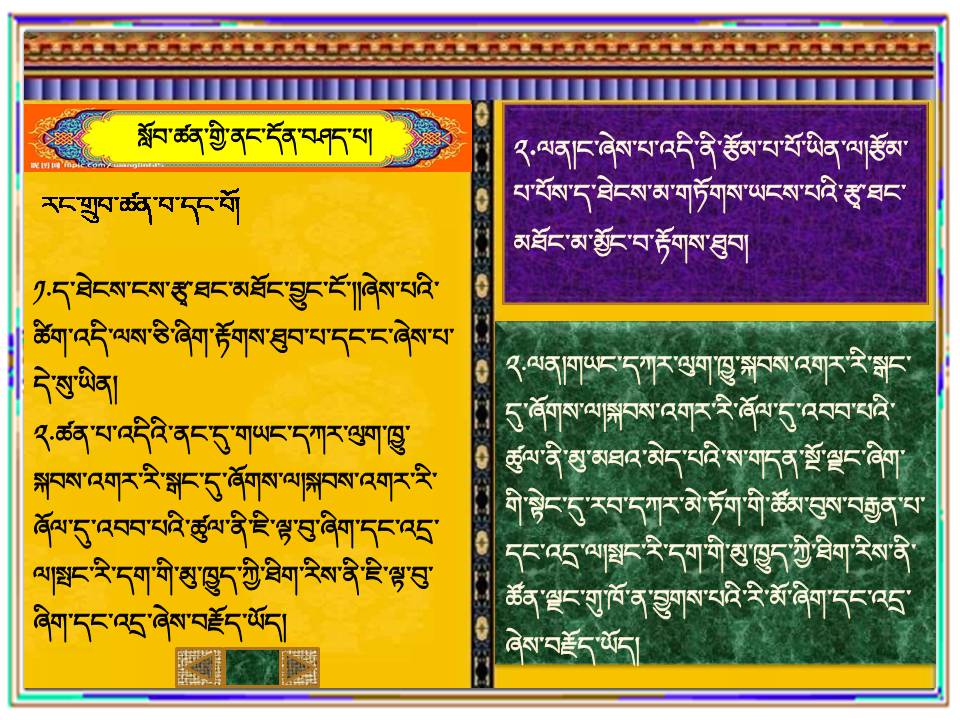 སློབ་ཚན་གྱི་ནང་དོན་བཤད་པ།
རང་གྲུབ་ཚན་པ་དང་པོ།
༡.ད་ཐེངས་ངས་རྩྭ་ཐང་མཐོང་བྱུང་ངོ་།།ཞེས་པའི་
ཚིག་འདི་ལས་ཅི་ཞིག་རྟོགས་ཐུབ་པ་དང་ང་ཞེས་པ་
དེ་སུ་ཡིན།
༢.ཚན་པ་འདིའི་ནང་དུ་གཡང་དཀར་ལུག་ཁྱུ་
སྐབས་འགར་རི་སྒང་དུ་ཞོགས་ལ།སྐབས་འགར་རི་
ཞོལ་དུ་འབབ་པའི་ཚུལ་ནི་ཇི་ལྟ་བུ་ཞིག་དང་འདྲ་
ལ།སྤང་རི་དག་གི་མུ་ཁྱུད་ཀྱི་ཐིག་རིས་ནི་ཇི་ལྟ་བུ་
ཞིག་དང་འདྲ་ཞེས་བརྗོད་ཡོད།
༢.ལན།ང་ཞེས་པ་འདི་ནི་རྩོམ་པ་པོ་ཡིན་ལ།རྩོམ་
པ་པོས་ད་ཐེངས་མ་གཏོགས་ཡངས་པའི་རྩྭ་ཐང་
མཐོང་མ་མྱོང་བ་རྟོགས་ཐུབ།
༢.ལན།གཡང་དཀར་ལུག་ཁྱུ་སྐབས་འགར་རི་སྒང་
དུ་ཞོགས་ལ།སྐབས་འགར་རི་ཞོལ་དུ་འབབ་པའི་
ཚུལ་ནི་མུ་མཐའ་མེད་པའི་ས་གདན་སྔོ་ལྗང་ཞིག་
གི་སྟེང་དུ་རབ་དཀར་མེ་ཏོག་གི་ཚོམ་བུས་བརྒྱན་པ་
དང་འདྲ་ལ།སྤང་རི་དག་གི་མུ་ཁྱུད་ཀྱི་ཐིག་རིས་ནི་
ཚོན་ལྗང་གུ་ཁོ་ན་བྱུགས་པའི་རི་མོ་ཞིག་དང་འདྲ་
ཞེས་བརྗོད་ཡོད།